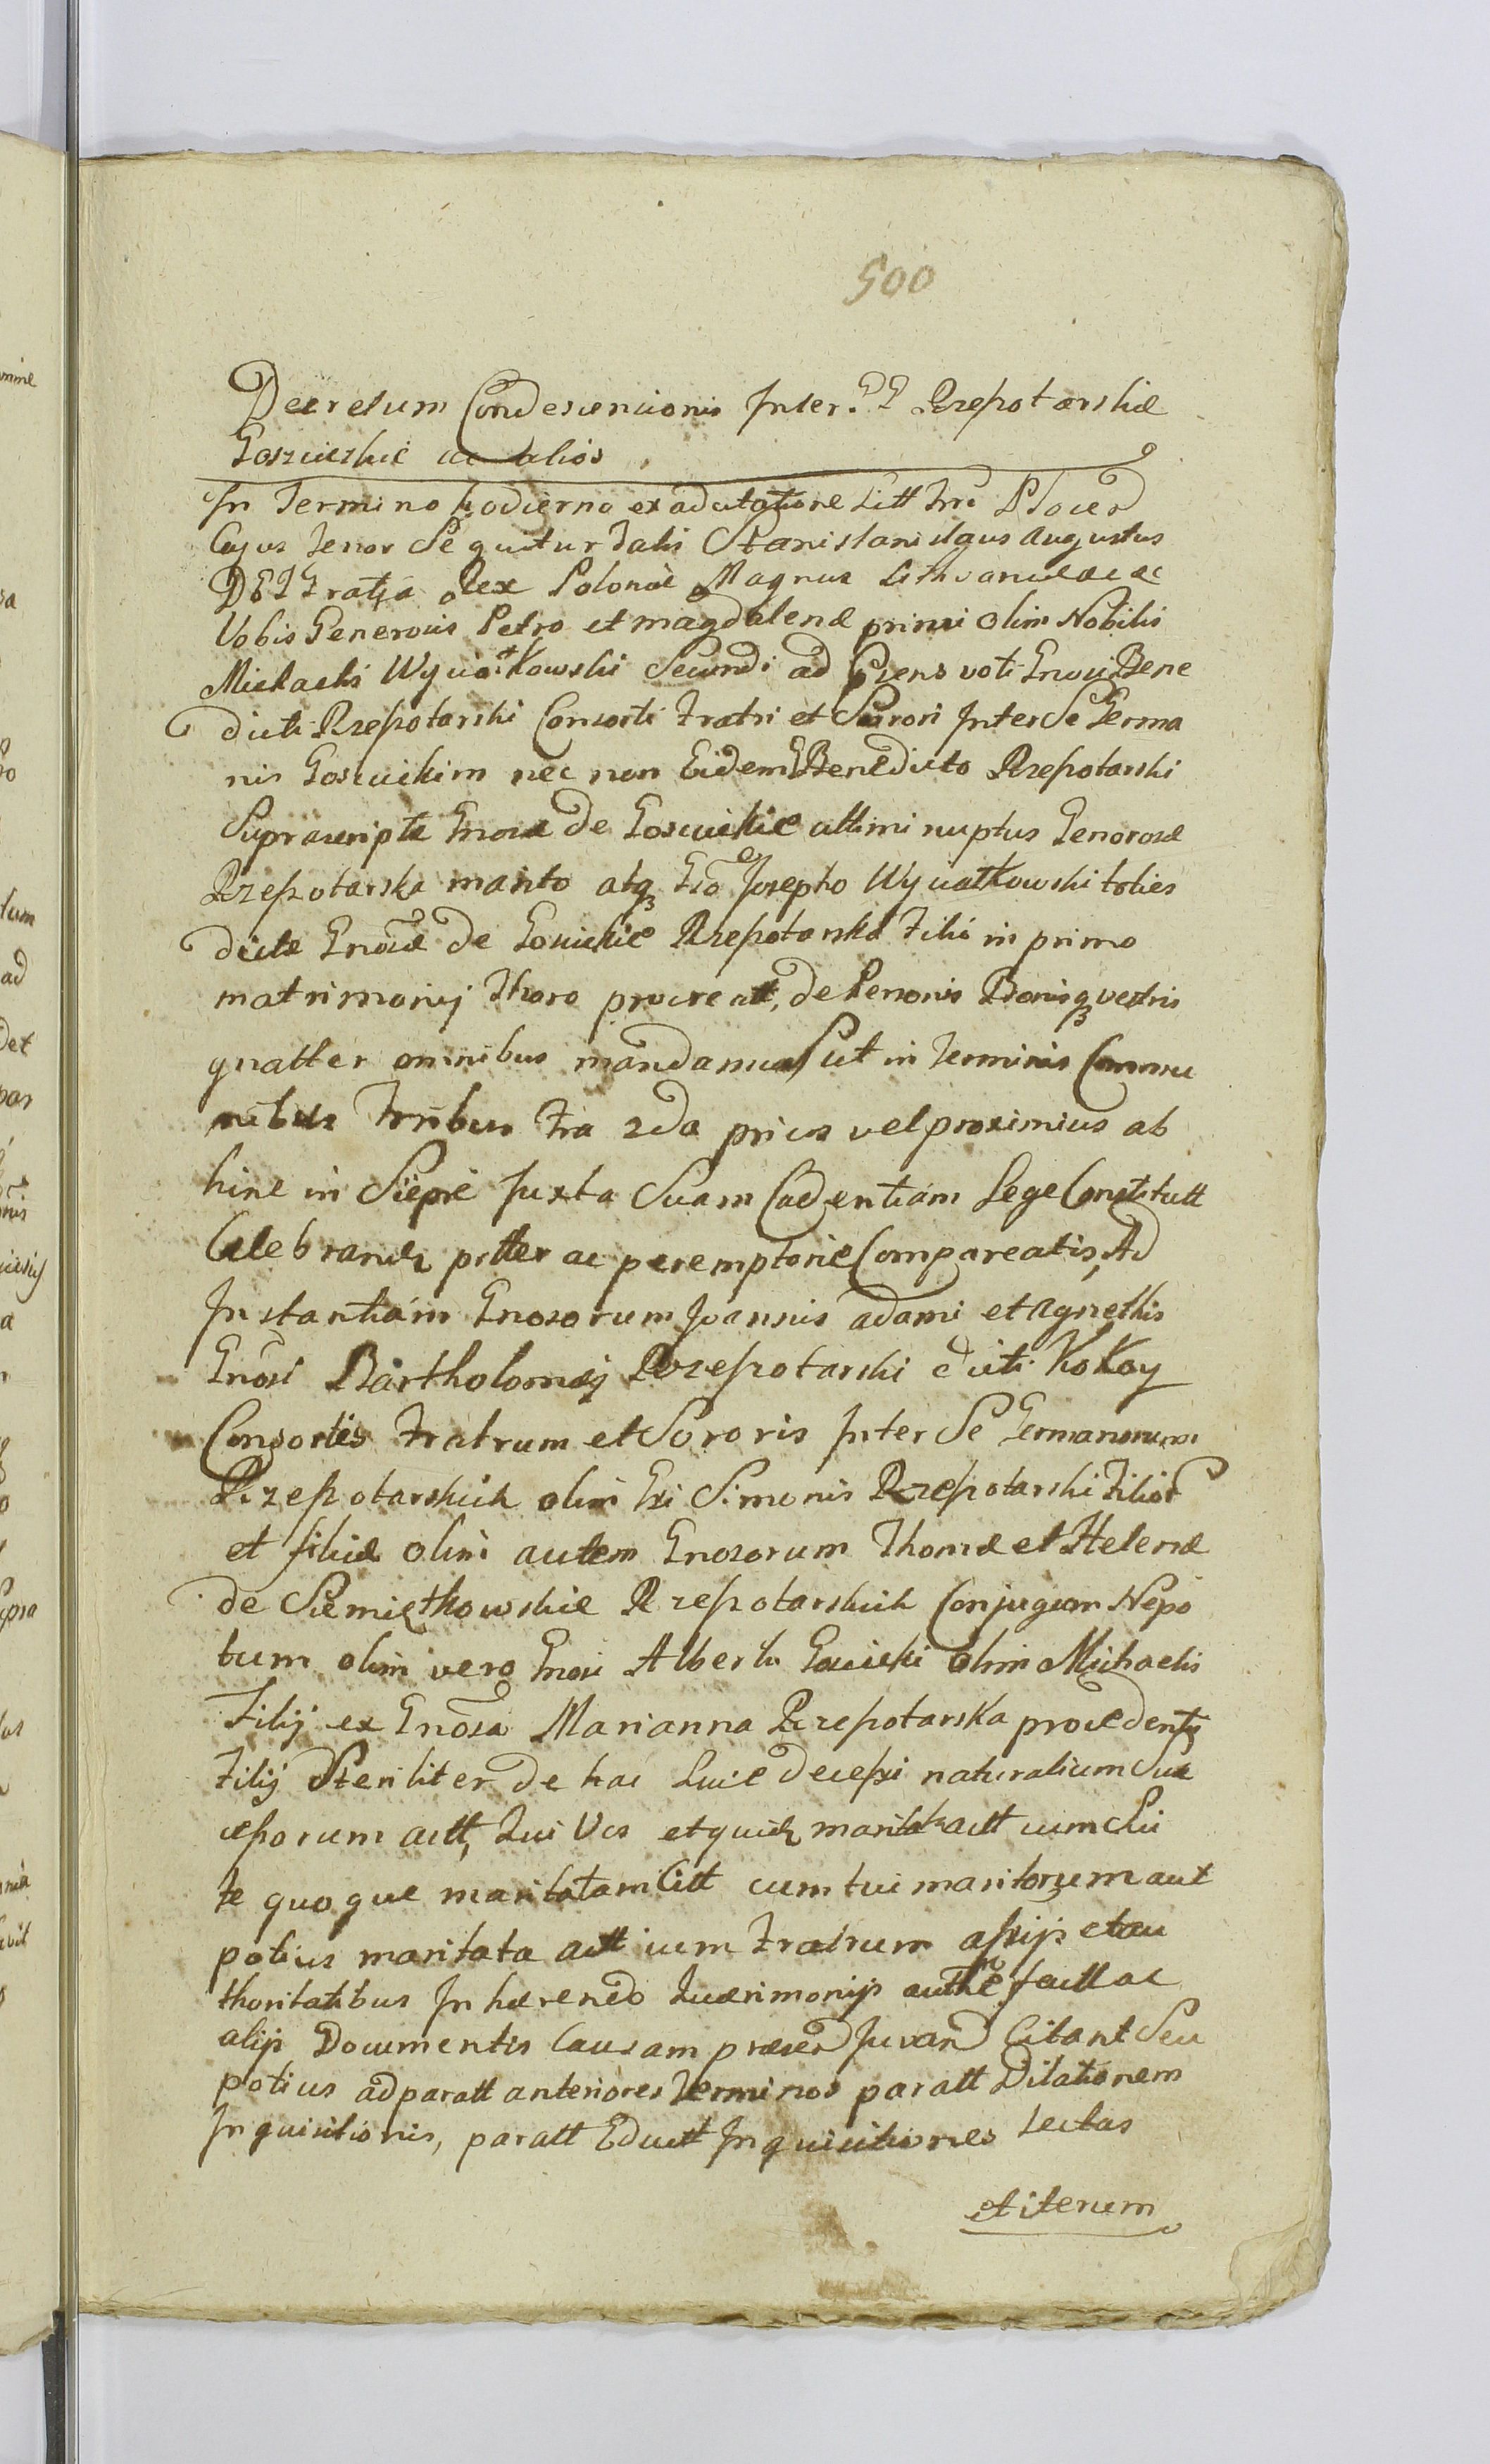 500
Decretum Condescencionis Inter GG Rzepotarskie
Goszczickie ac alios
In Termino hodierno ex adcitatione Litt Tri Plocen
Cujus Tenor Sequitur Talis Stanislanislaus Augustus
DEI Gratia Rex Poloniæ Magnus Lithvaniæ ac
Vobis Generosis Petro et magdalenæ primi olim Nobilis
Michaelis Wyciotkowski Secundi ad prens voti Gnosi Bene
dicti Rzepotarski Consorti Fratri et Sorori Inter Se Germa
nis Goscickim nec non Eidem G Benedicto Rzepotarski
Suprascriptæ Gnosæ De Goscickie ultimi nuptus Generosæ
Rzepotarska marito atq Gso Josepho Wyciatkowski toties
dictæ Gnosæ de Goscickie Rzepotarska Filio in primo
matrimonij Thoro procreatt, de Personis Bonisq vestris
gnatter omnibus mandamus ut in Terminis Commu
nibus Trribus Fra 2da prius vel proximius ab
hinc in Sierpie Juxta Suam Cadentiam Lege Constitutt
Celebrandis prtter ac peremptorie Compareatis, Ad
Instantiam Gnosorum Joannis adami et Agnethis
Gnosi Bartholomæj Rzepotarski dicti Kokoy
Consortis Fratrum et Sororis Inter Se Germanorum
Rzepotarskich olim Gsi Simonis Rzepotarski Filior
et filiæ olim autem Gnosorum Thomæ et Helenæ
de Siemiętkowskie Rzepotarskich Conjugum Nepo
tum olim vero Gnosi Alberti Goscicki olim Michaelis
Filij ex Gnosa Marianna Rzepotarska procedents
Filij Steriliter de hac Luce decessi naturalium Suc
cessorum actt, Qui Vos et quidem maritt actt cum Sui
te quoque maritatam Citt cum tui maritorum aut
potius maritata actt cum Fratrum assijs et au
thoritatibus Inhærendo Quærimonijs authce factt ac
alijs Documentis Causam præsen Juvan Citant Seu
potius ad paratt anteriores Terminos paratt Dilationem
Inquisitionis, paratt Eductt Inquisitiones Lectas
et iterum